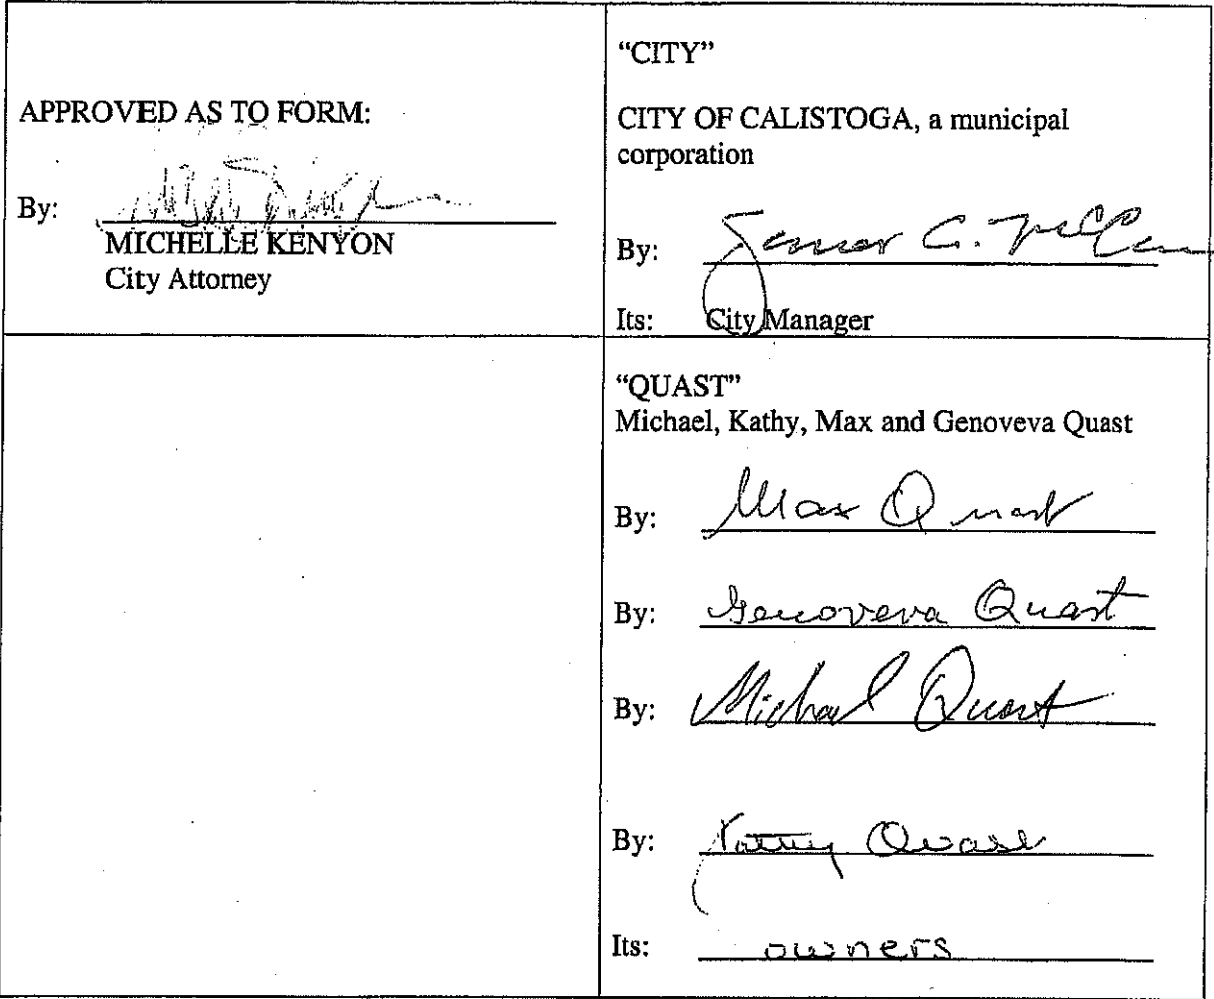 APPROVED AS TO FORM:
By:
MICHELLE KENYON
City Attorney
“CITY”
CITY OF CALISTOGA, a municipal
corporation
By: C. McCann
Its: City Manager
“QUAST”
Michael, Kathy, Max and Genoveva Quast
By: Max Quast
By: Genoveva Quast
By: Michael Quast
By: Kathy Quast
Its: owners